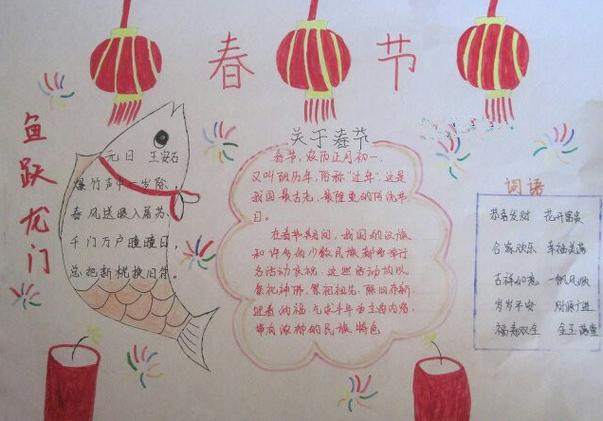 春节
鱼跃龙门
元日 王安石
爆竹声中一岁除,
春风送暖入屠苏,
千门万户瞳瞳日,
总把新桃换旧符。
关于春节
春节,农历正月初一,
又叫阴历年,俗称"过年",这是
我国最古老、最隆重的传统节
日。
在春节期间,我国的汉族
和许多的少数民族都要举行
各活动庆祝,这些活动均以
祭祀神佛、祭祀祖先、除旧布新、
纳福、乞求丰年为主要内容,
带有浓郁的民族特色
词语
恭喜发财 花开富贵
合家欢乐 幸福美满
吉祥如意 一帆风顺
岁岁平安 财源广进
福寿双全 金玉满堂